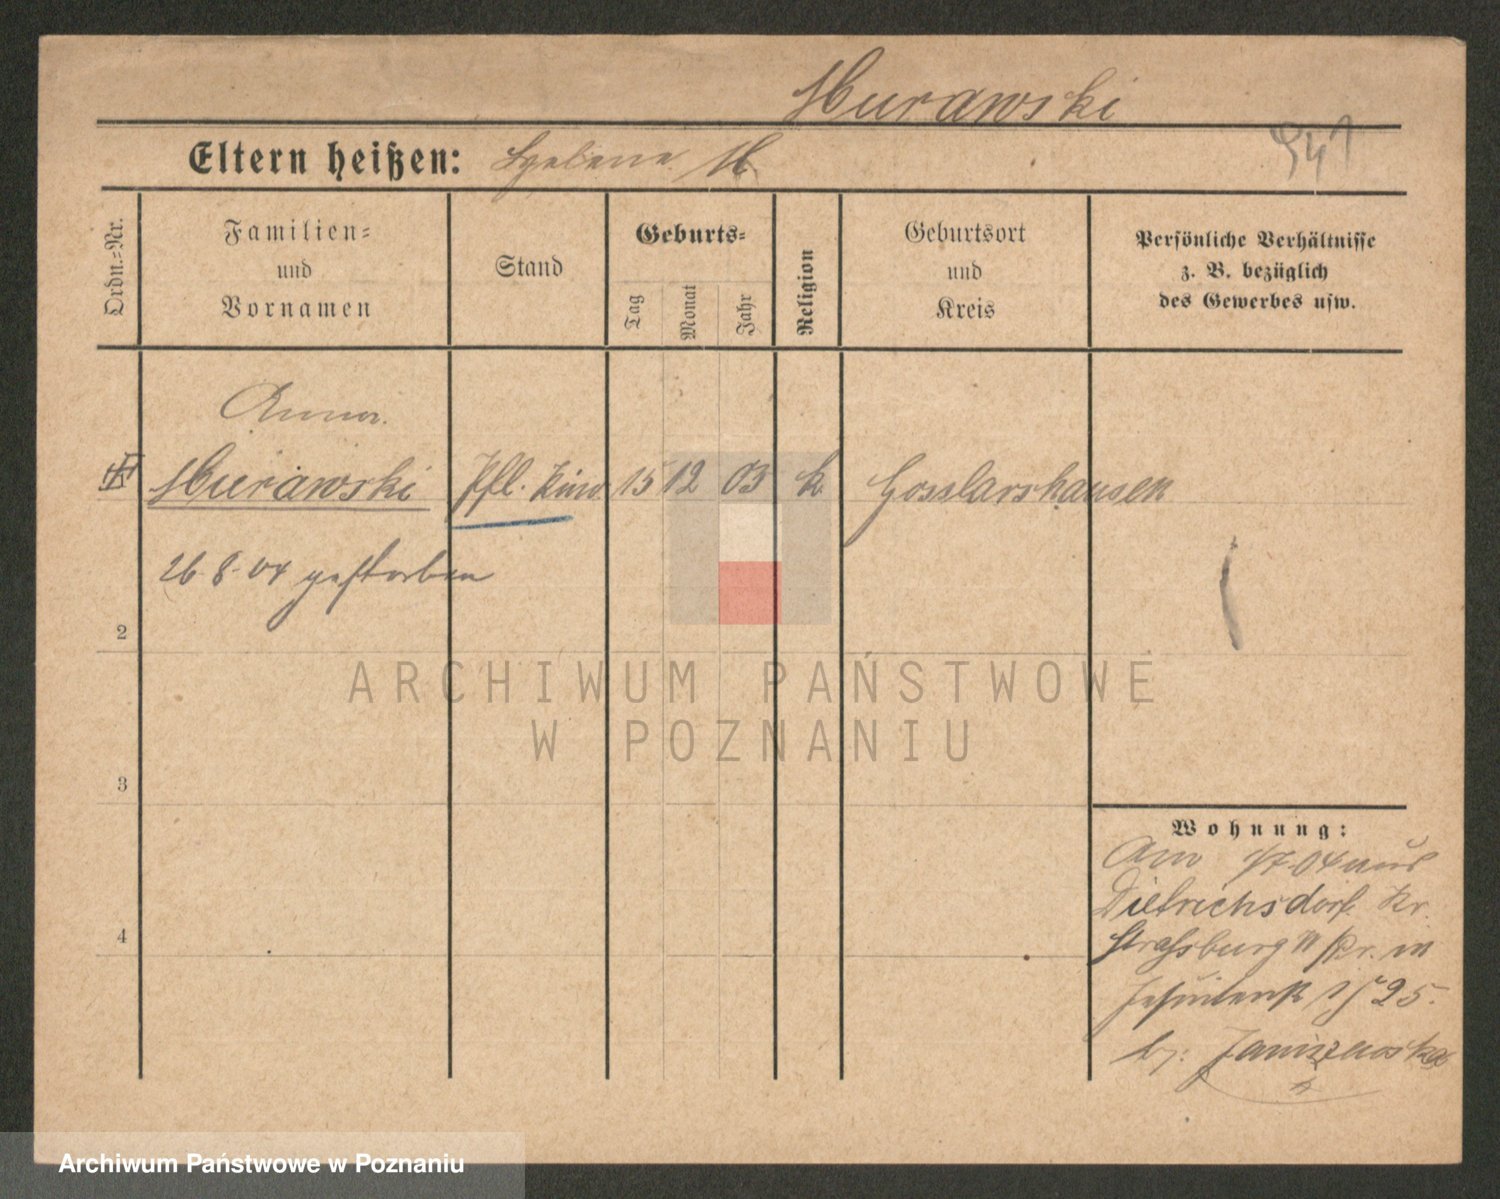 Murawski
Eltern heißen: Helene M.
941
Ordn.-Nr.
Familien-
und
Vornamen
Stand
Geburts-
Tag
Monat
Jahr
Religion
Geburtsort
und
Kreis
Persönliche Verhältnisse
z. B. bezüglich
des Gewerbes usw.
Anna
Murawski Pfl. Kind 15 12 03 k. Gosslarshausen
26.8.04 gestorben
2
3
4
Wohnung:
Am 1/7 04 aus
Dietrichsdorf Kr.
Strasburg W/Pr. in
Jesuitenstr 25.
b/:
ARCHIWUM PAŃSTWOWE
W POZNANIU
Archiwum Państwowe w Poznaniu